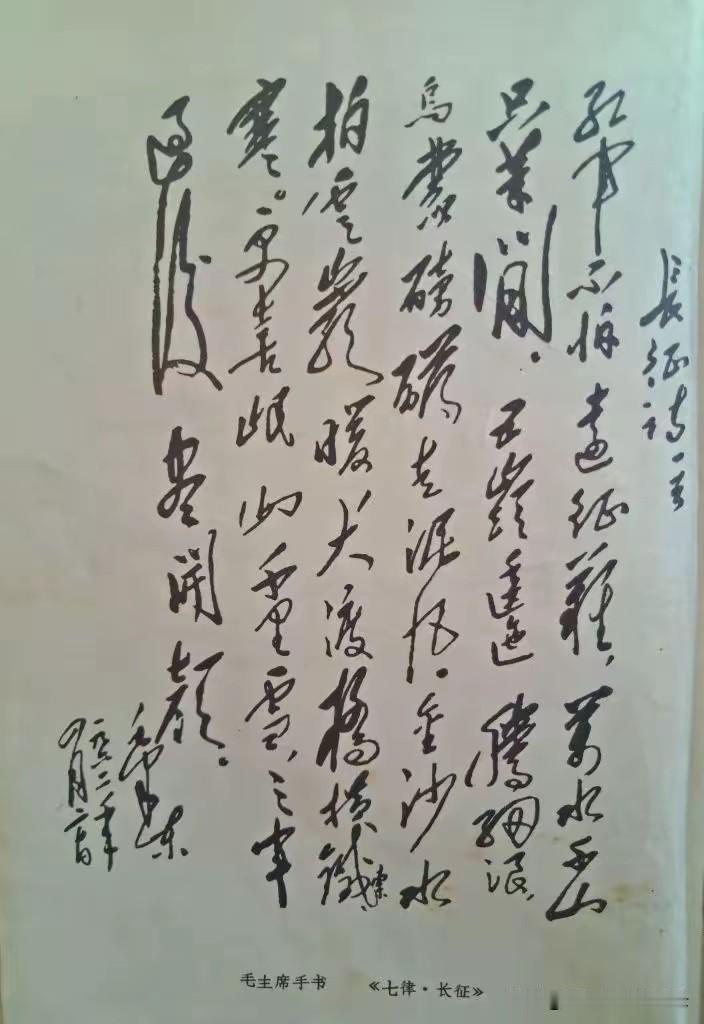 長征詩一首
紅軍不怕遠征難，萬水千山
只等閒。五嶺逶迤騰細浪，
烏蒙磅礴走泥丸。金沙水
拍雲巖暖大渡橋橫鐵索
寒。更喜岷山千里雪，三軍
過後盡開顏。
毛澤東
一九六二年
四月二十日
毛主席手书 《七律·长征》